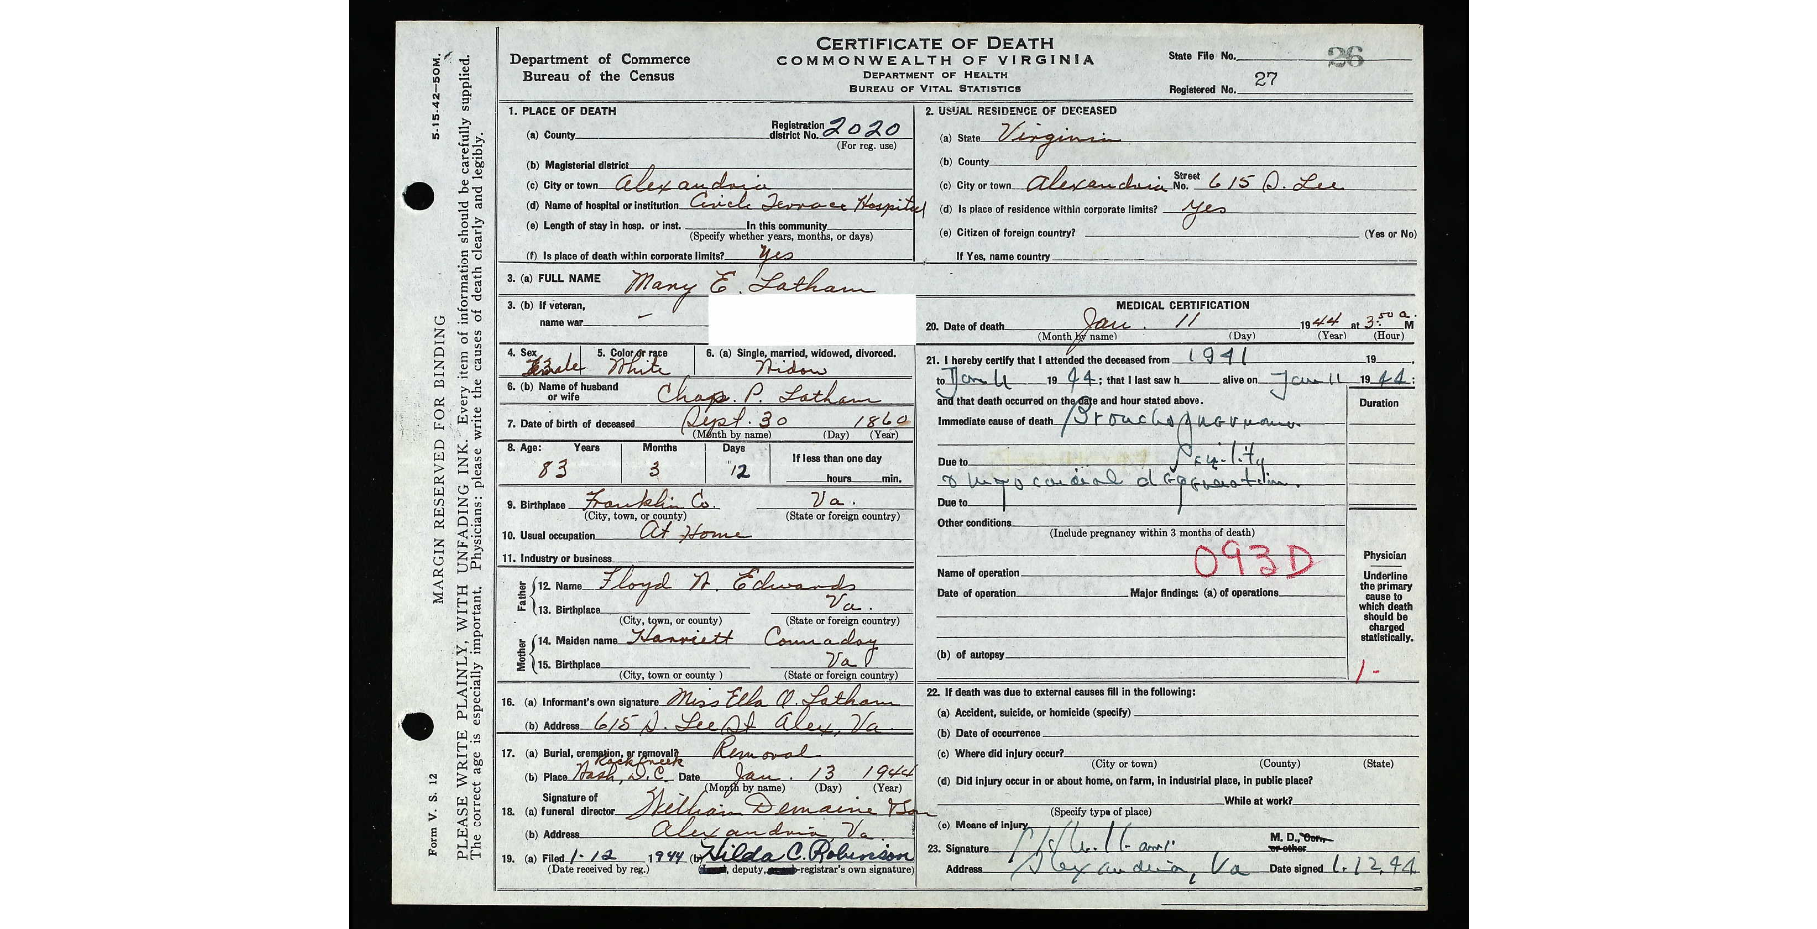 5-15-42—50M.
MARGIN RESERVED FOR BINDING
PLEASE WRITE PLAINLY, WITH UNFADING INK. Every item of information should be carefully supplied.
The correct age is especially important. Physicians: please write the causes of death clearly and legibly.
Form V. S. 12
Department of Commerce
Bureau of the Census
CERTIFICATE OF DEATH
COMMONWEALTH OF VIRGINIA
DEPARTMENT OF HEALTH
BUREAU OF VITAL STATISTICS
State File No. 26
Registered No. 27
1. PLACE OF DEATH
(a) County
Registration district No. 2020
(For reg. use)
(b) Magisterial district
(c) City or town Alexandria
(d) Name of hospital or institution Circle Terrace Hospital
(e) Length of stay in hosp. or inst. In this community
(Specify whether years, months, or days)
(f) Is place of death within corporate limits? Yes
2. USUAL RESIDENCE OF DECEASED
(a) State Virginia
(b) County
(c) City or town Alexandria Street No. 615 S. Lee
(d) Is place of residence within corporate limits? Yes
(e) Citizen of foreign country? (Yes or No)
If Yes, name country
3. (a) FULL NAME Mary E. Latham
3. (b) If veteran,
name war —
4. Sex Female 5. Color or race White 6. (a) Single, married, widowed, divorced. Widow
6. (b) Name of husband or wife Chas. P. Latham
7. Date of birth of deceased Sept. 30 1860
(Month by name) (Day) (Year)
8. Age: Years Months Days If less than one day
83 3 12 hours min.
9. Birthplace Franklin Co. Va.
(City, town, or county) (State or foreign country)
10. Usual occupation At Home
11. Industry or business
Father
12. Name Floyd W. Edwards
13. Birthplace Va.
(City, town, or county) (State or foreign country)
Mother
14. Maiden name Harriett
15. Birthplace Va
(City, town or county ) (State or foreign country)
16. (a) Informant's own signature Miss Ella O. Latham
(b) Address 615 S. Lee St Alex, Va.
17. (a) Burial, cremation, or removal? Removal
Rock Creek
(b) Place Wash, D.C. Date Jan. 13 1944
(Month by name) (Day) (Year)
18. Signature of
(a) funeral director William Demaine & Son
(b) Address Alexandria, Va.
19. (a) Filed 1-12 1944 (b) Hilda C. Robinson
(Date received by reg.) deputy, registrar's own signature)
MEDICAL CERTIFICATION
20. Date of death Jan. 11 1944 at 3:50 a. M
(Month by name) (Day) (Year) (Hour)
21. I hereby certify that I attended the deceased from 1941 19
to Jan 11 1944; that I last saw h alive on Jan 11 1944;
and that death occurred on the date and hour stated above.
Duration
Immediate cause of death Bronchopneumonia
Due to Senility
& myocardial degeneration
Due to
Other conditions
(Include pregnancy within 3 months of death)
093D
Name of operation
Date of operation Major findings: (a) of operations
(b) of autopsy
Physician
Underline
the primary
cause to
which death
should be
charged
statistically.
1-
22. If death was due to external causes fill in the following:
(a) Accident, suicide, or homicide (specify)
(b) Date of occurrence
(c) Where did injury occur?
(City or town) (County) (State)
(d) Did injury occur in or about home, on farm, in industrial place, in public place?
While at work?
(Specify type of place)
(e) Means of injury
23. Signature M. D., Coro.
or other
Address Alexandria, Va Date signed 1.12.44